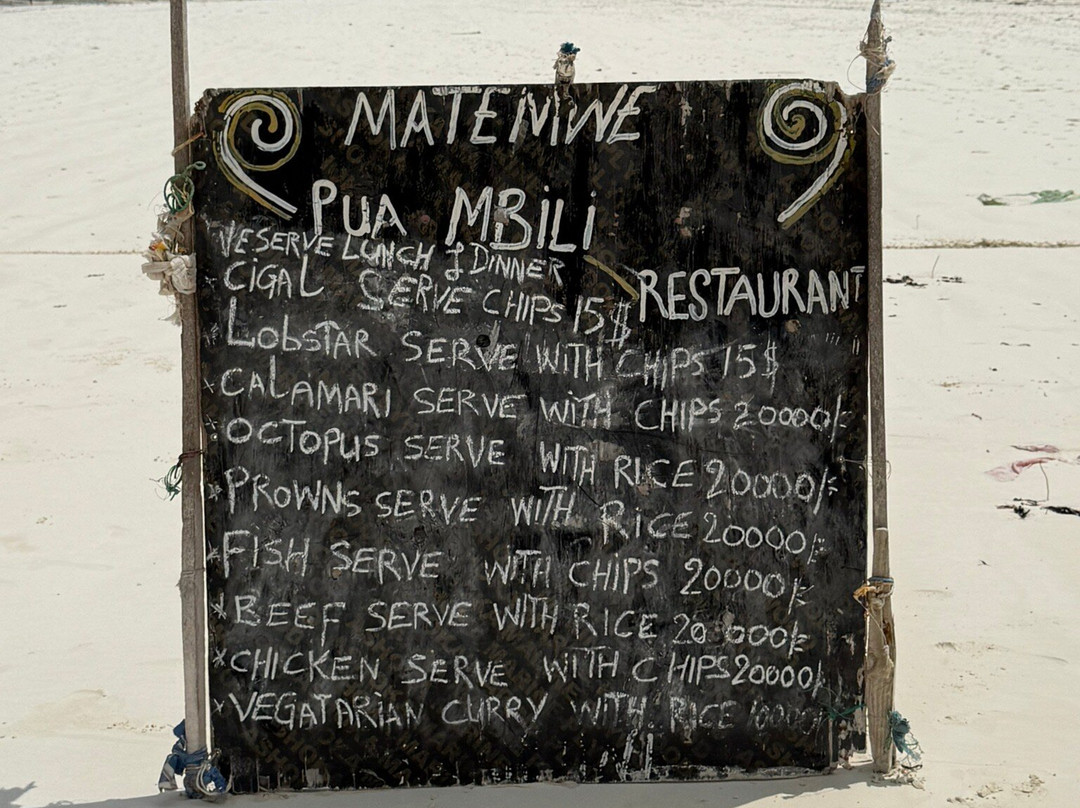 MATEMWE
PUA MBILI
WESERVE LUNCH & DINNER
RESTAURANT
CIGAL SERVE CHIPS 15$
LOBSTAR SERVE WITH CHIPS 15$
* CALAMARI SERVE WITH CHIPS 20000/=
* OCTOPUS SERVE WITH RICE 20000/=
* PROWNS SERVE WITH RICE 20000/=
* FISH SERVE WITH CHIPS 20000/=
* BEEF SERVE WITH RICE 20 000/=
* CHICKEN SERVE WITH CHIPS 20000/=
* VEGATARIAN CURRY WITH RICE